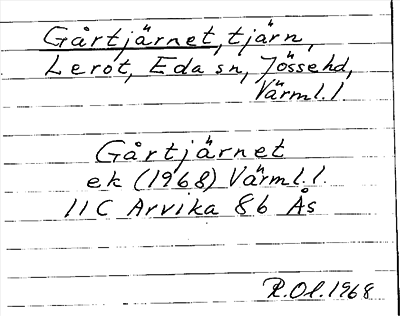 Gårtjärnet, tjärn,
Lerot, Eda sn, Jössehd,
Värml.l.
Gårtjärnet
ek (1968) Värml.l.
11C Arvika 8b Ås
R.Ol.1968